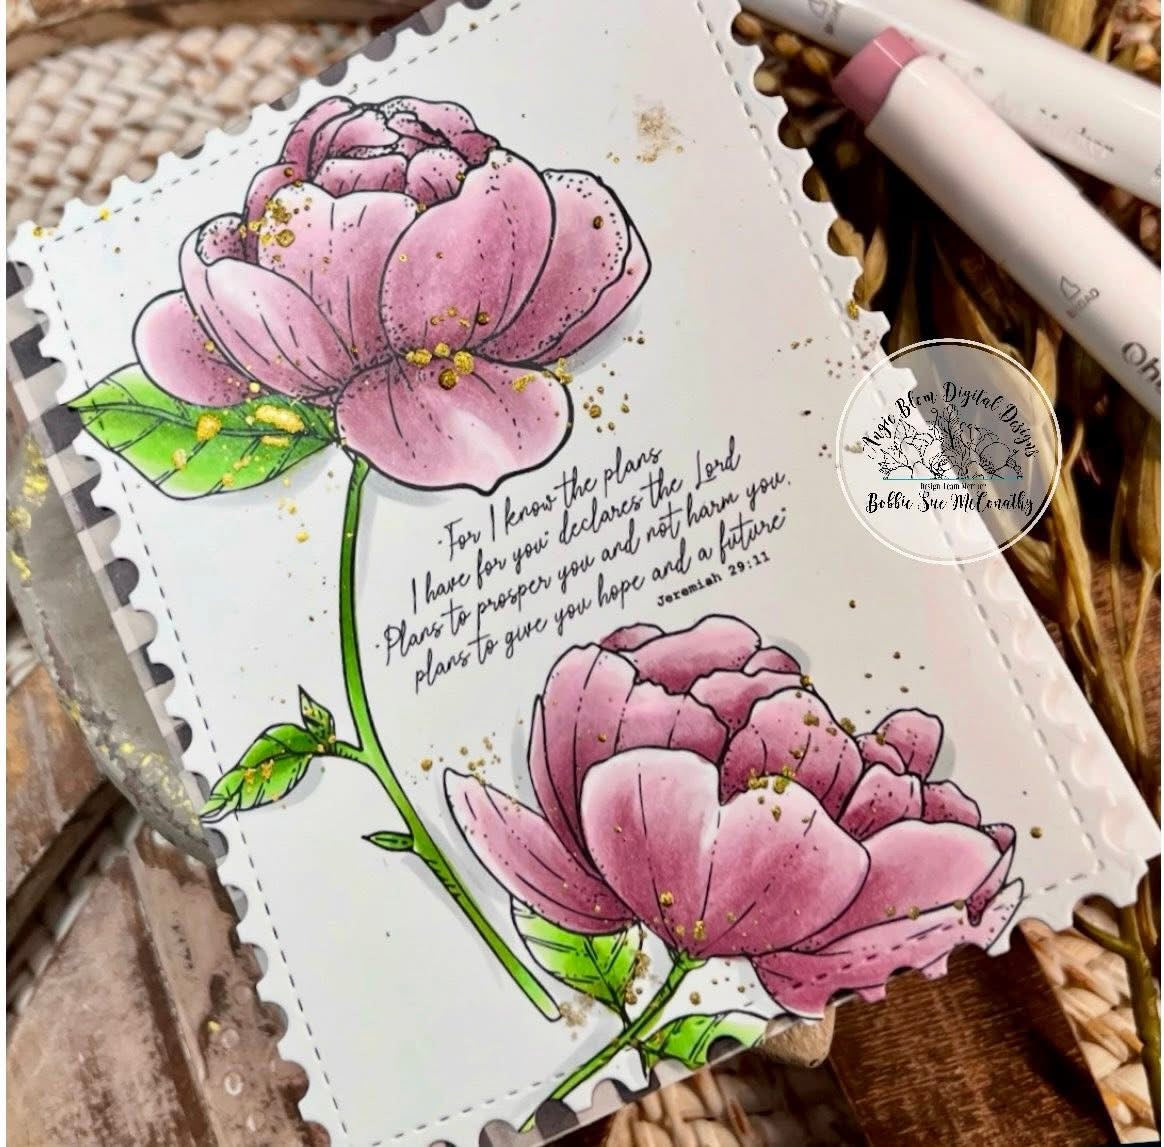 "For I know the plans
I have for you" declares the Lord
"Plans to prosper you and not harm you,
plans to give you hope and a future"
Jeremiah 29:11
Angie Blom Digital Designs
Design Team Member
Bobbie Sue McConathy
Ohu